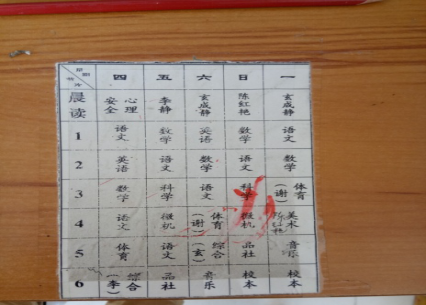 星期 节次 四 五 六 日 一
晨读 安全 心理 李静 玄成静 陈红艳 玄成静
1 语文 数学 英语 数学 语文
2 英语 语文 数学 语文 数学
3 数学 科学 语文 科学 体育(谢)
4 语文 微机 体育(谢) 微机 美术
5 体育 语文 综合(玄) 品社 音乐
6 综合(李) 品社 音乐 校本 校本